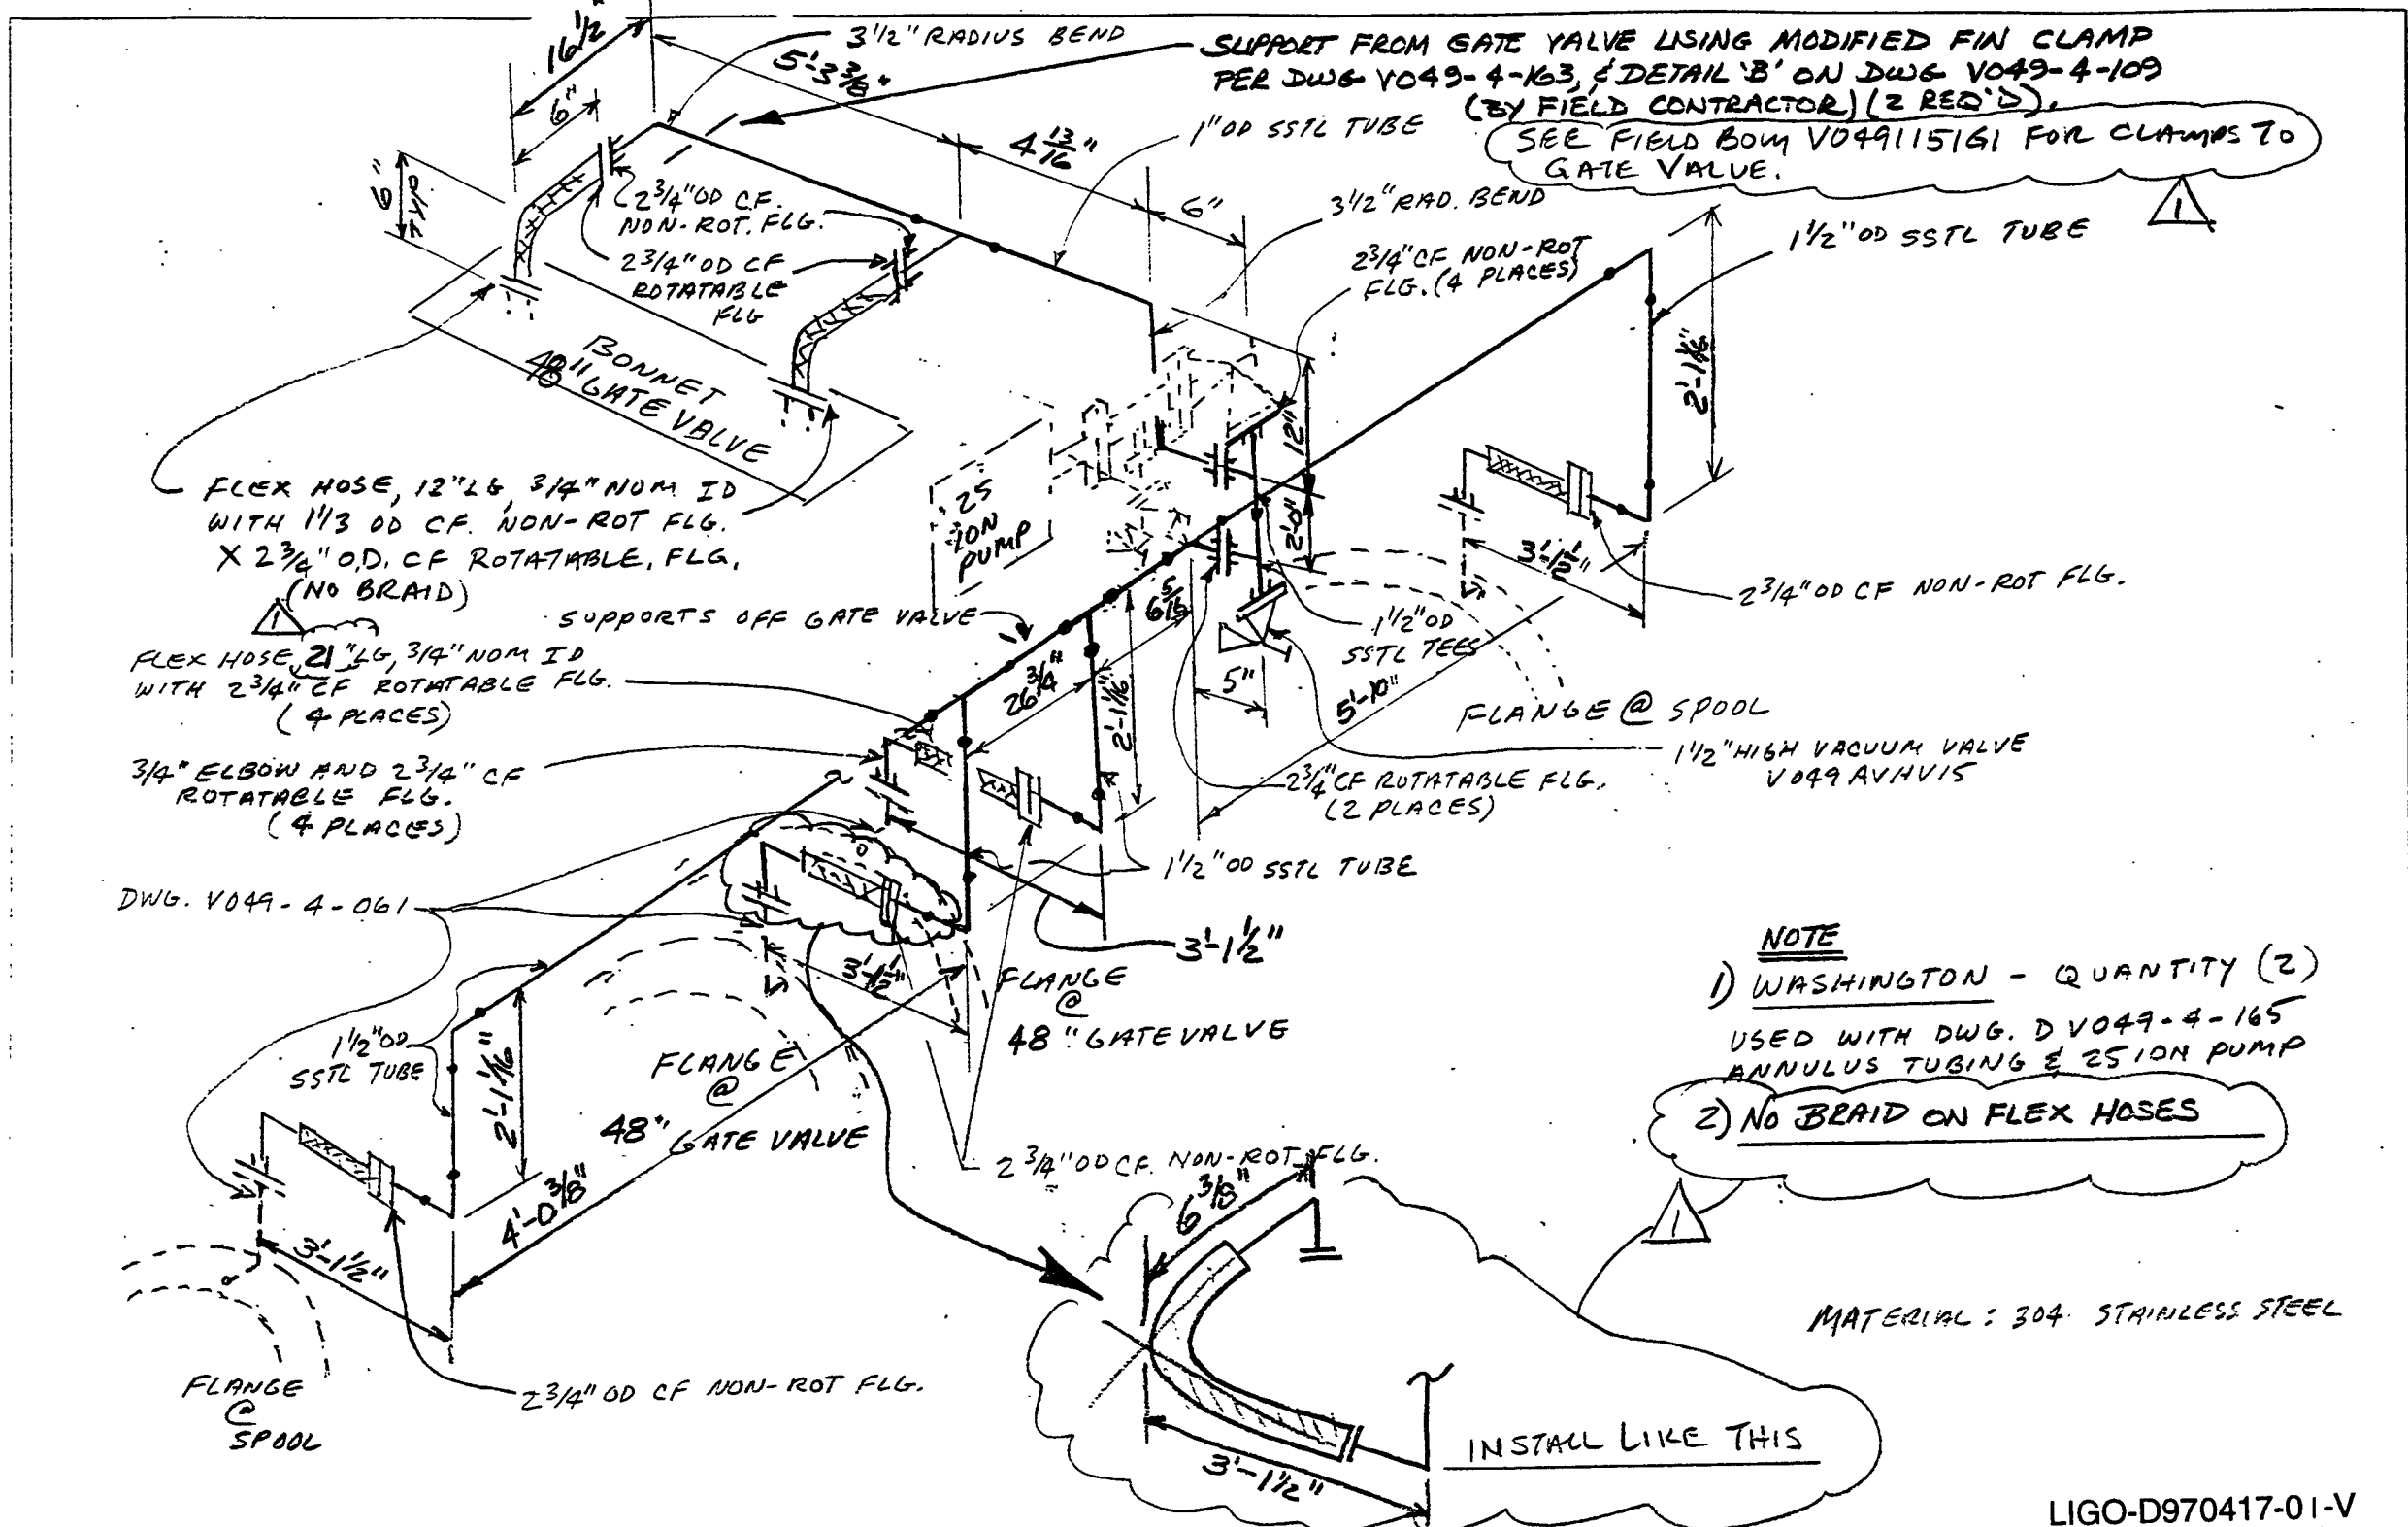 16 1/2"
3 1/2" RADIUS BEND
5'-3 3/8"
SUPPORT FROM GATE VALVE USING MODIFIED FIN CLAMP
PER DWG V049-4-163, & DETAIL 'B' ON DWG V049-4-109
(BY FIELD CONTRACTOR) (2 REQ'D).
SEE FIELD BOM V0491151G1 FOR CLAMPS TO
GATE VALVE.
1
6"
6"
TYP.
4 13/16"
1" OD SSTL TUBE
6"
3 1/2" RAD. BEND
2 3/4" OD CF.
NON-ROT. FLG.
2 3/4" OD CF
ROTATABLE
FLG
2 3/4" CF NON-ROT
FLG. (4 PLACES)
1 1/2" OD SSTL TUBE
2'-1 1/16"
BONNET
48" GATE VALVE
12"
2'-0"
FLEX HOSE, 12" LG, 3/4" NOM ID
WITH 1 1/3 OD CF. NON-ROT FLG.
X 2 3/4" O.D. CF ROTATABLE. FLG.
(NO BRAID)
1
25
ION
PUMP
3'-1 1/2"
2 3/4" OD CF NON-ROT FLG.
SUPPORTS OFF GATE VALVE
6 5/16
1 1/2" OD
SSTL TEES
FLEX HOSE, 21" LG, 3/4" NOM ID
WITH 2 3/4" CF ROTATABLE FLG.
(4 PLACES)
26 3/4"
2'-1 1/16"
5"
5'-10"
FLANGE @ SPOOL
1 1/2" HIGH VACUUM VALVE
V049 AVHV15
3/4" ELBOW AND 2 3/4" CF
ROTATABLE FLG.
(4 PLACES)
2 3/4" CF ROTATABLE FLG.
(2 PLACES)
1 1/2" OD SSTL TUBE
DWG. V049-4-061
3'-1 1/2"
3'-1 1/2"
FLANGE
@
48" GATE VALVE
NOTE
1) WASHINGTON - QUANTITY (2)
USED WITH DWG. D V049-4-165
ANNULUS TUBING & 25 ION PUMP
2) NO BRAID ON FLEX HOSES
1
1 1/2" OD
SSTL TUBE
2'-1 1/16"
FLANGE
@
48"
GATE VALVE
2 3/4" OD CF. NON-ROT FLG.
4'-0 3/8"
3'-1 1/2"
6 3/8"
MATERIAL: 304 STAINLESS STEEL
FLANGE
@
SPOOL
2 3/4" OD CF NON-ROT FLG.
INSTALL LIKE THIS
3'-1 1/2"
LIGO-D970417-01-V